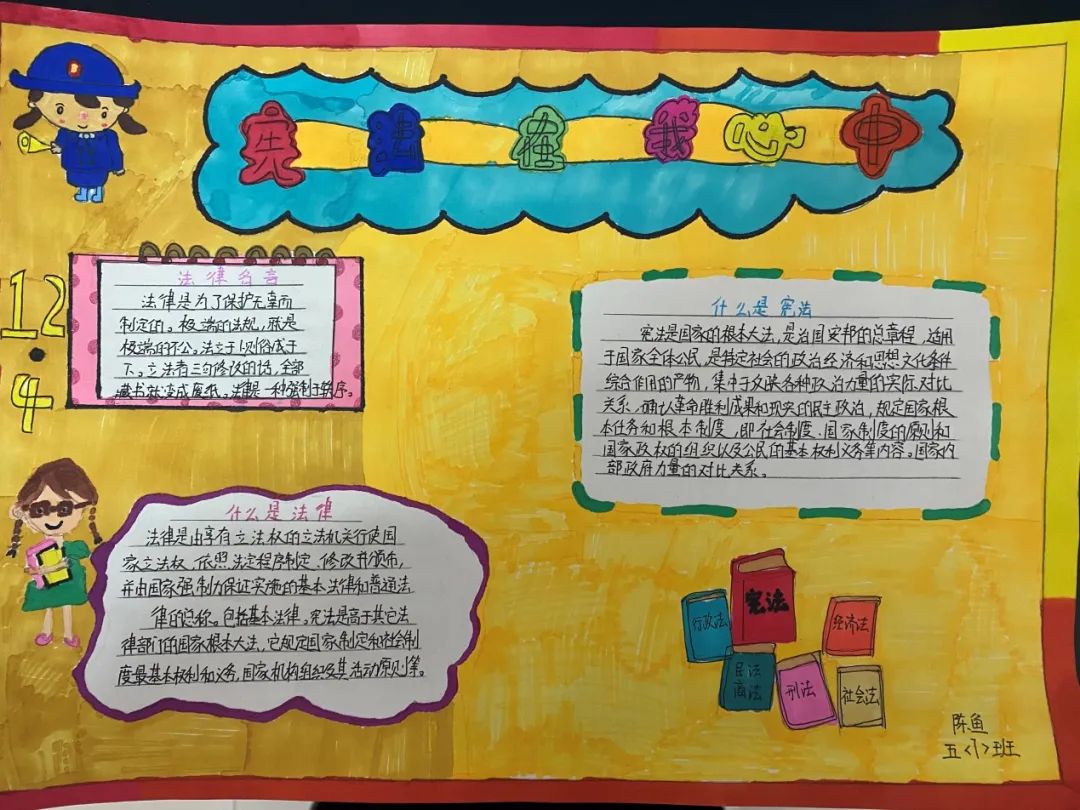 宪法在我心中
12.4
法律名言
法律是为了保护无辜而
制定的。极端的法规,就是
极端的不公。法立于上则俗成于
下。立法者三句修改的话,全部
藏书就会变成废纸。法律是一种强制于秩序。
什么是宪法
宪法是国家的根本大法,是治国安邦的总章程,适用
于国家全体公民,是特定社会的政治经济和思想文化条件
综合作用的产物,集中反映各种政治力量的实际对比
关系,确认革命胜利成果和现实的民主政治,规定国家根
本任务和根本制度,即社会制度、国家制度的原则和
国家政权的组织以及公民的基本权利义务等内容。国家内
部政府力量的对比关系。
什么是法律
法律是由享有立法权的立法机关行使国
家立法权,依照法定程序制定、修改并颁布,
并由国家强制力保证实施的基本法律和普通法
律的总称。包括基本法律。宪法是高于其它法
律部门的国家根本大法,它规定国家制定和社会制
度最基本权利和义务,国家机构组织及其活动原则等。
宪法
行政法
经济法
民法
商法
刑法
社会法
陈鱼
五<1>班